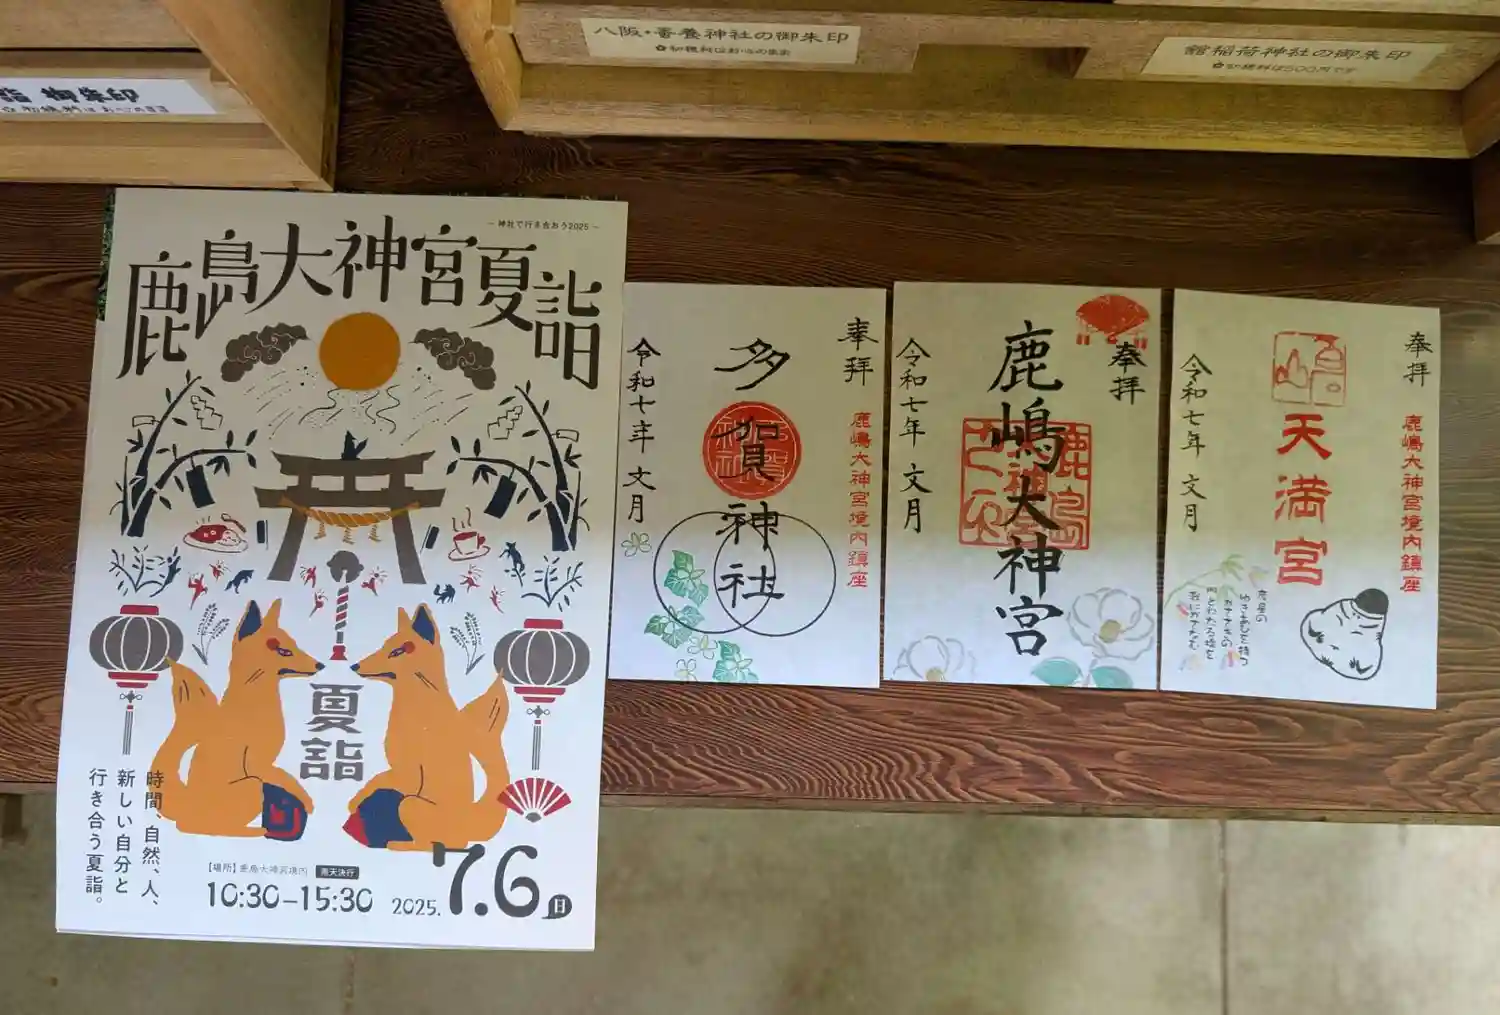 八阪・香養神社の御朱印
✿初穂料はお心のままに
館稲荷神社の御朱印
✿初穂料は500円です
詣 御朱印
― 神社で行き合おう2025 ―
鹿島大神宮夏詣
夏詣
時間、自然、人、
新しい自分と
行き合う夏詣。
【場所】鹿島大神宮境内 雨天決行
10:30–15:30 2025.7.6日
奉拝
鹿嶋大神宮境内鎮座
多賀神社
令和七年 文月
奉拝
鹿嶋大神宮
令和七年 文月
奉拝
鹿嶋大神宮境内鎮座
天満宮
令和七年 文月